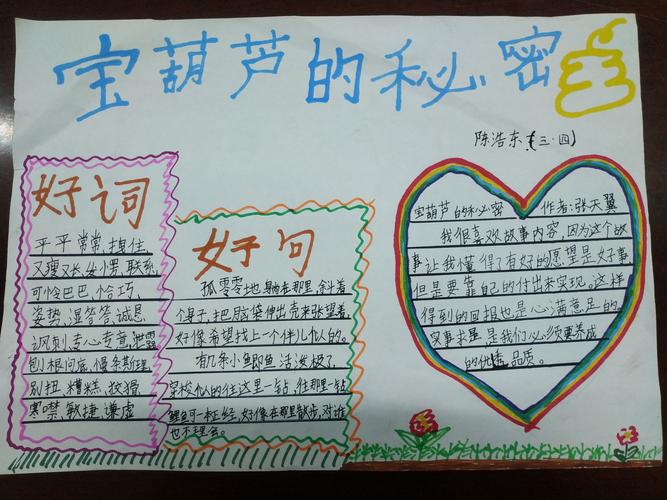 宝葫芦的秘密
陈浩东(三·四)
好词
平平常常、拽住、
又瘦又长、坐小男、联系、
可怜巴巴、恰巧、
姿势、湿答答、诚恳
讽刺、专心专意、泄露
刨根问底、慢条斯理、
别扭、糟糕、狡猾、
寒噤、敏捷、谦虚
好句
孤零零地躺在那里,斜着
个身子,把脑袋伸出壳来张望着,
好像希望找上一个伴儿似人的。
有几条小鲫鱼活泼极了,
穿梭似的往这里一钻,往那里一钻
鲤鱼可一本正经,好像在那里散步,对谁
也不理会。
宝葫芦的秘密 作者:张天翼
我很喜欢故事内容,因为这个故
事让我懂得了有好的愿望是好事
但是要靠自己的付出来实现。这样
得到的回报也是心满意足的
实事求是,是我们必须要养成
的优秀品质。